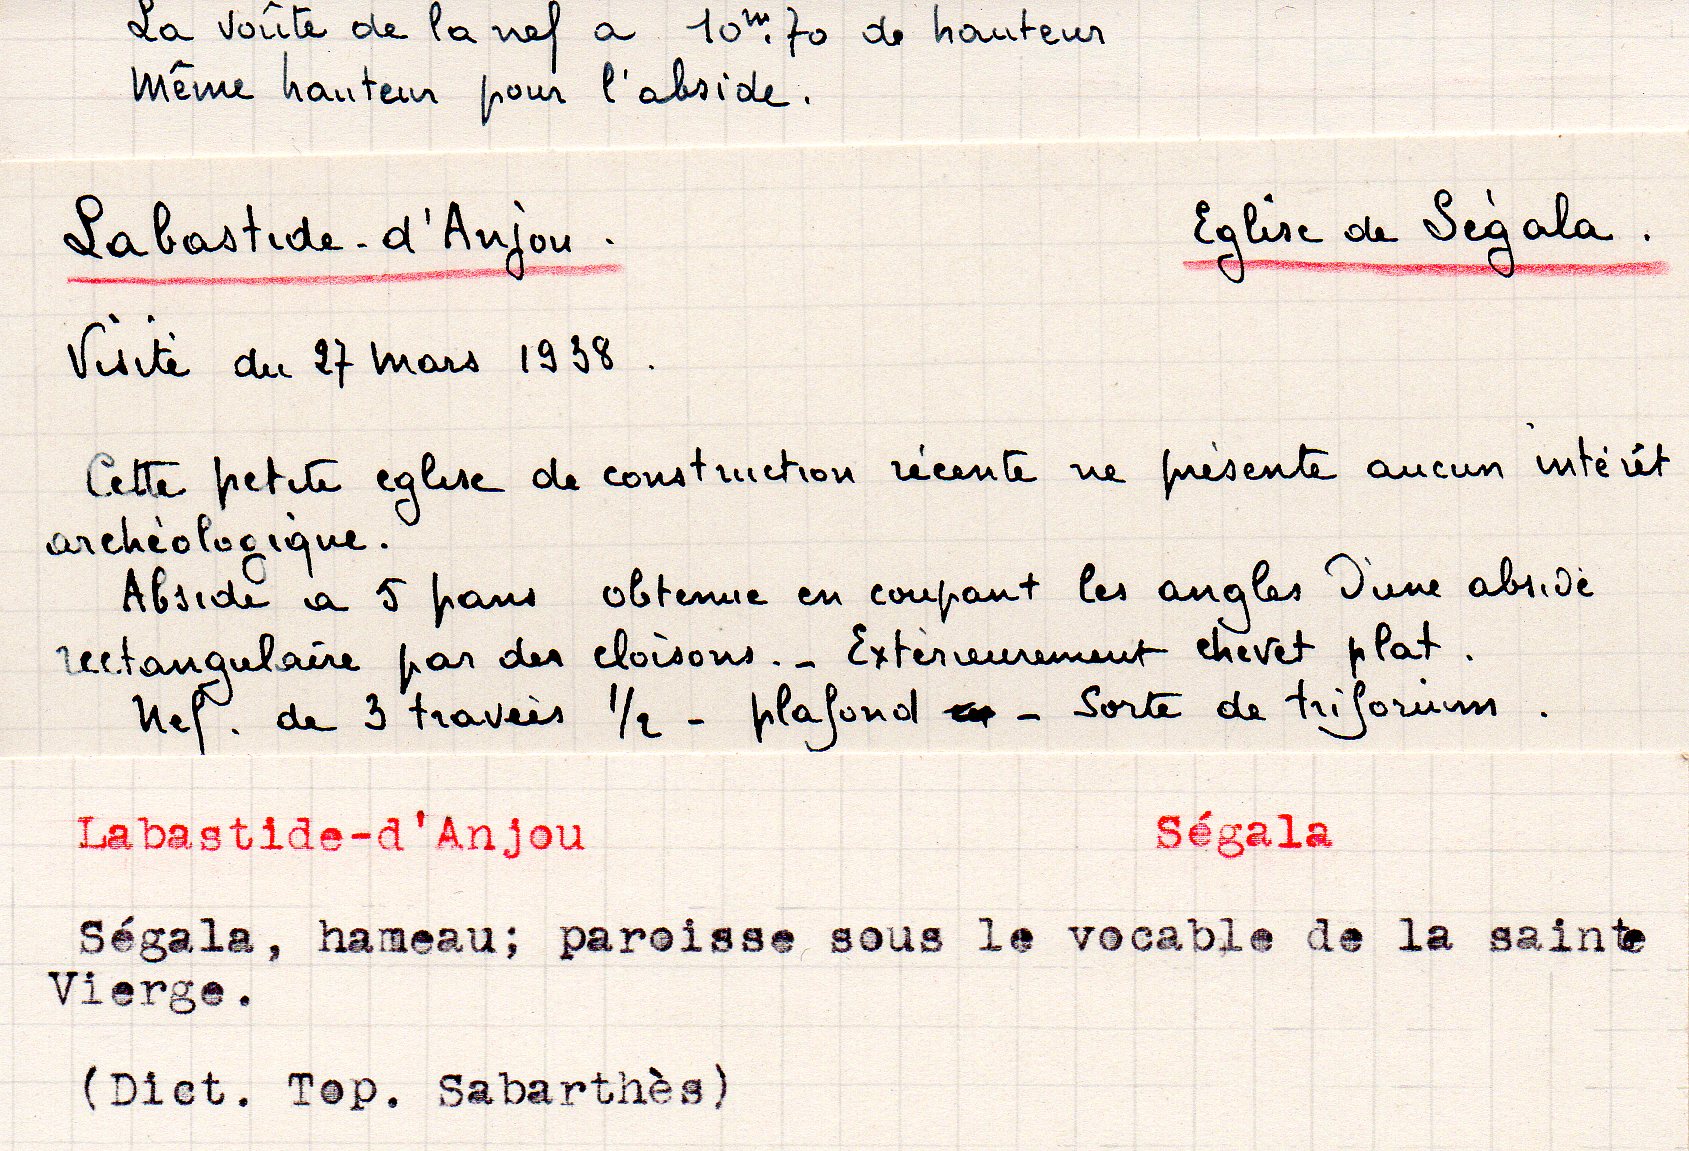 La voûte de la nef a 10m.70 de hauteur
Même hauteur pour l'abside.
Labastide-d'Anjou.
Eglise de Ségala.
Visite du 27 mars 1938.
Cette petite eglise de construction récente ne présente aucun intérêt
archéologique.
Abside a 5 pans obtenue en coupant les angles d'une abside
rectangulaire par des cloisons. - Extérieurement chevet plat.
Nef. de 3 travées 1/2 - plafond - Sorte de triforium.
Labastide-d'Anjou
Ségala
Ségala, hameau; paroisse sous le vocable de la sainte
Vierge.
(Dict. Top. Sabarthès)